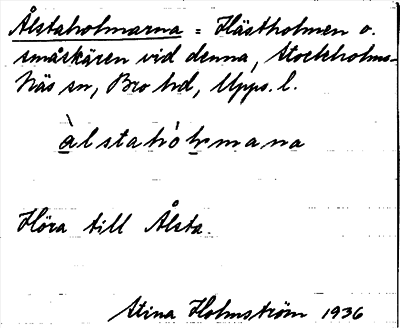 Ålstaholmarna = Hästholmen o.
småskären vid denna, Stockholms-
Näs sn, Bro hd, Upps. l.
àlstahòlmana
Höra till Ålsta.
Stina Holmström 1936